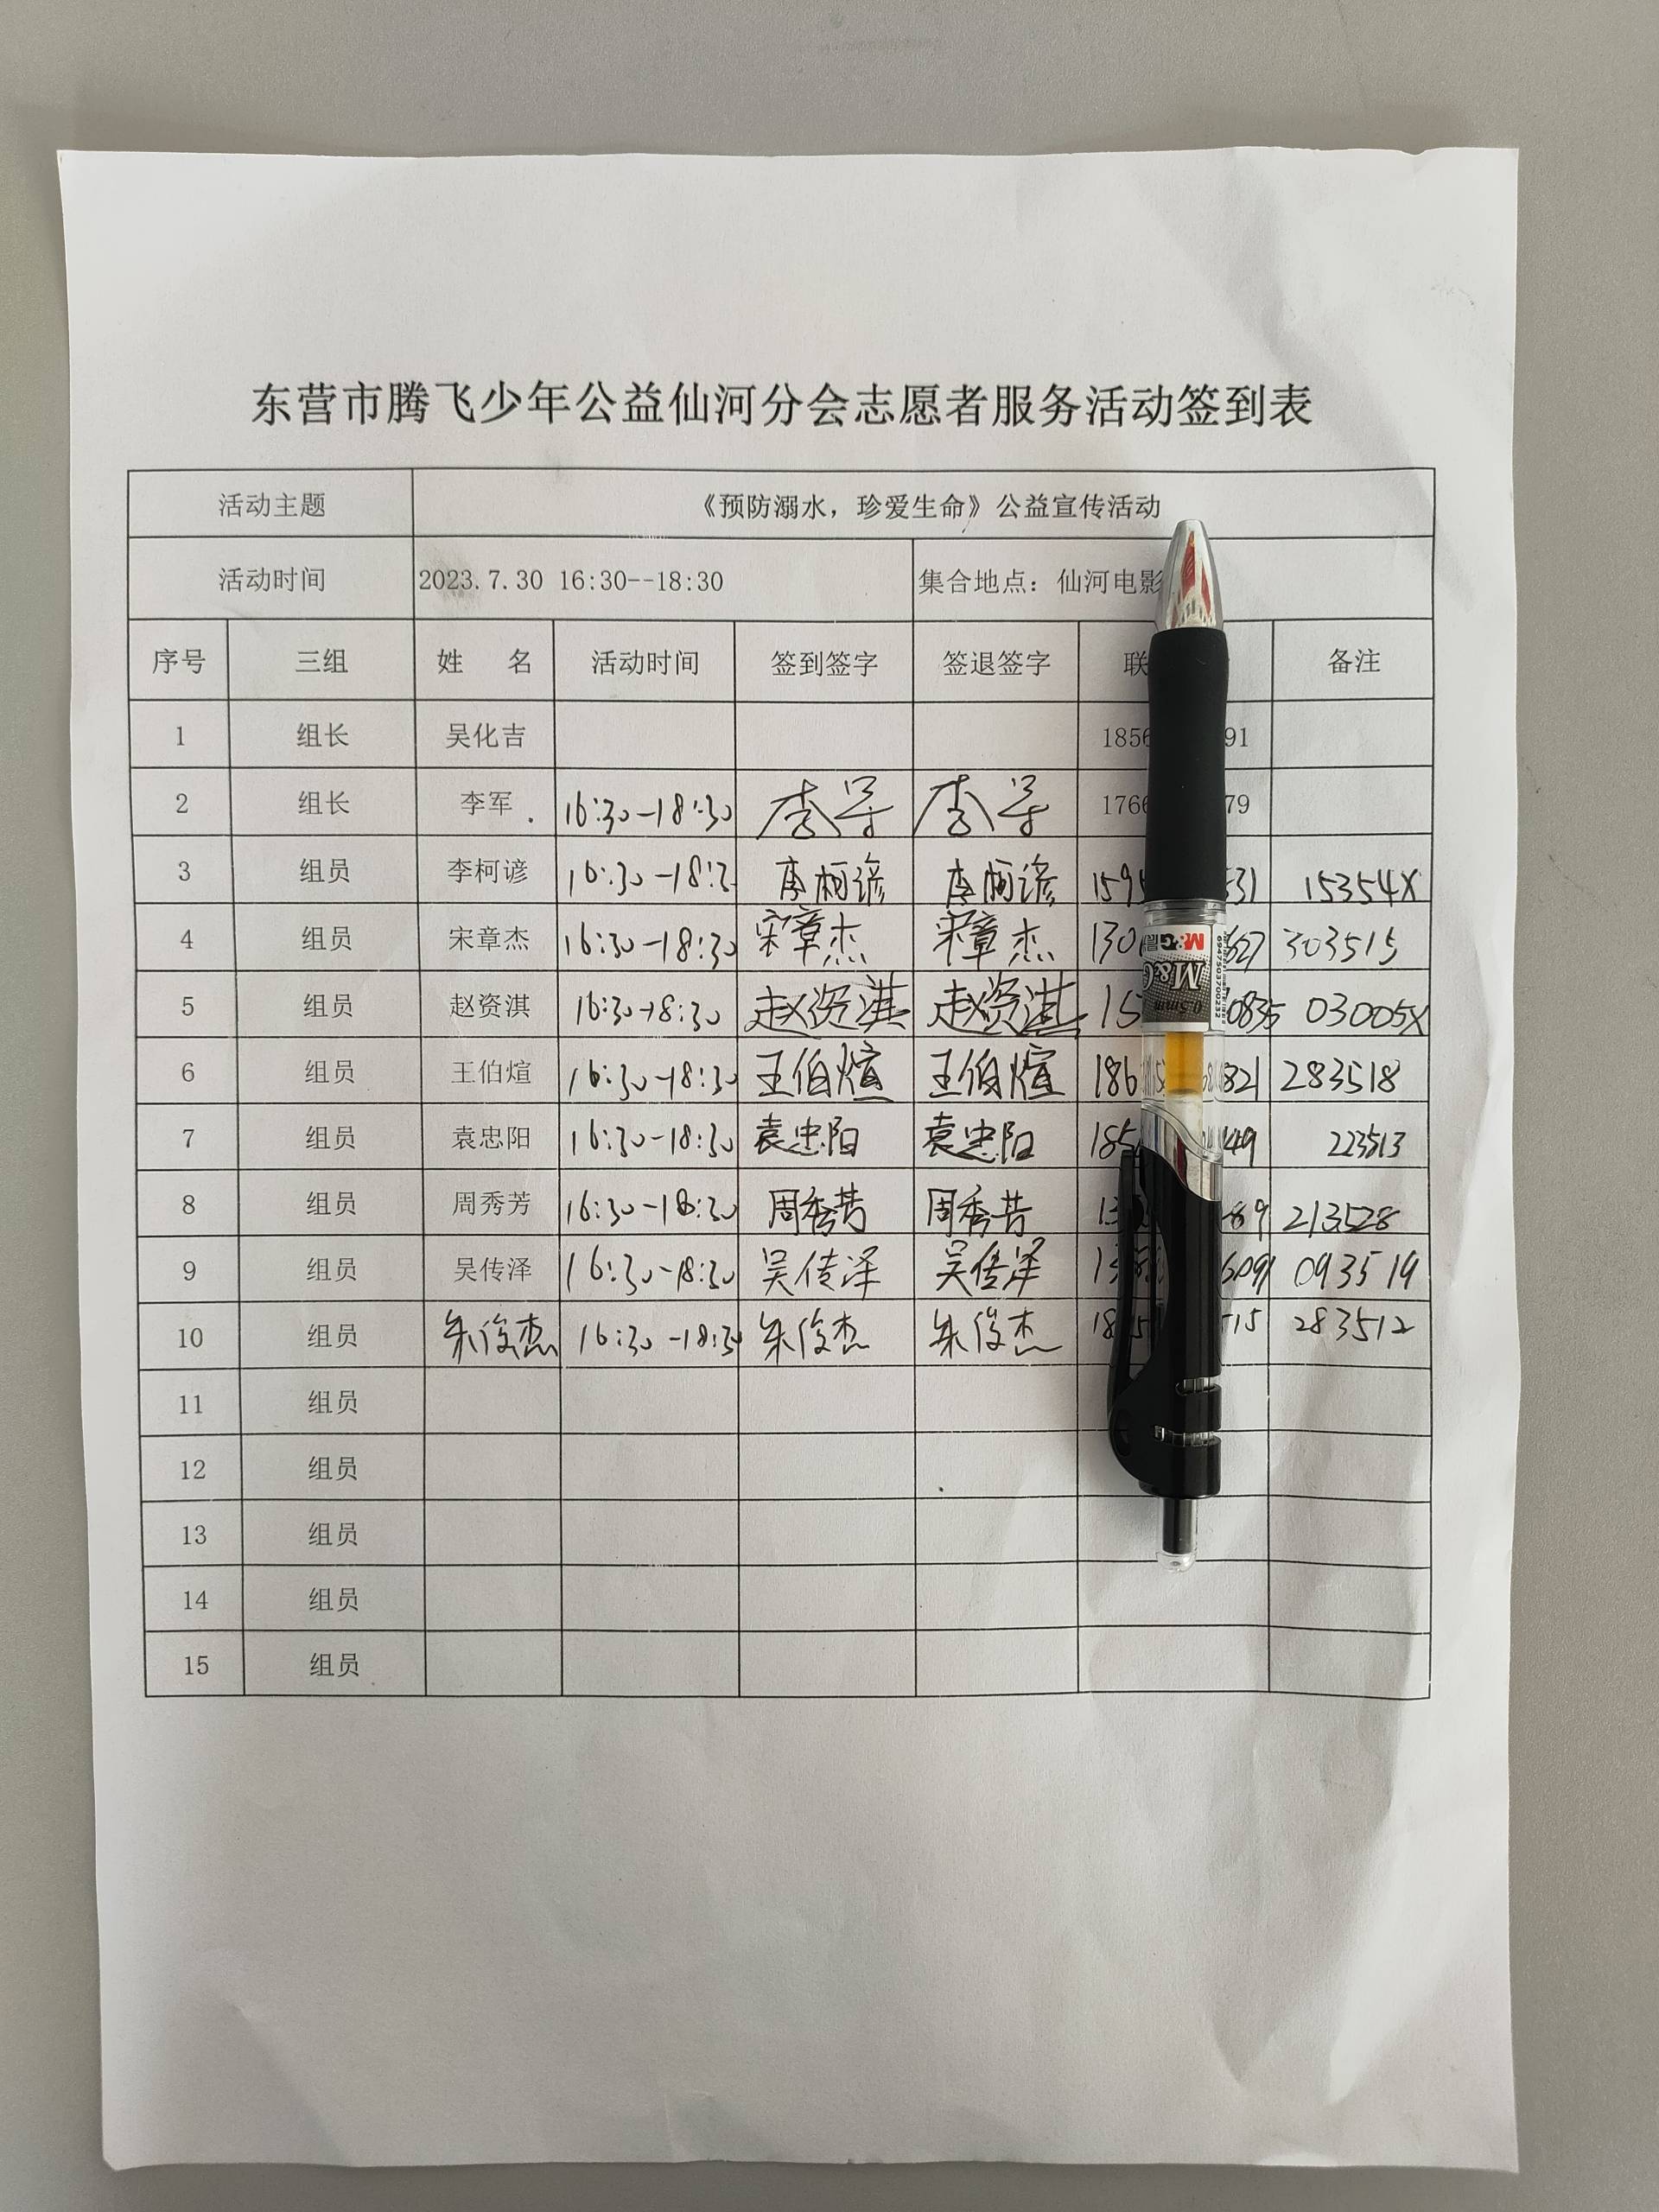 东营市腾飞少年公益仙河分会志愿者服务活动签到表
活动主题 《预防溺水，珍爱生命》公益宣传活动
活动时间 2023.7.30 16:30--18:30 集合地点：仙河电影
序号 三组 姓 名 活动时间 签到签字 签退签字 联 备注
1 组长 吴化吉 1856 91
2 组长 李军 16:30-18:30 李军 李军 1766 79
3 组员 李柯谚 16:30-18:3 李柯谚 李柯谚 1595 531 15354X
4 组员 宋章杰 16:30-18:30 宋章杰 宋章杰 130 627 303515
5 组员 赵资淇 16:30-18:30 赵资淇 赵资淇 15 0835 03005X
6 组员 王伯煊 16:30-18:30 王伯煊 王伯煊 186 821 283518
7 组员 袁忠阳 16:30-18:30 袁忠阳 袁忠阳 185 49 223513
8 组员 周秀芳 16:30-18:30 周秀芳 周秀芳 13 89 213528
9 组员 吴传泽 16:30-18:30 吴传泽 吴传泽 13 6091 093519
10 组员 朱俊杰 16:30-18:30 朱俊杰 朱俊杰 18 515 283512
11 组员
12 组员
13 组员
14 组员
15 组员
M&G
M&G
0.5mm
6947503700232